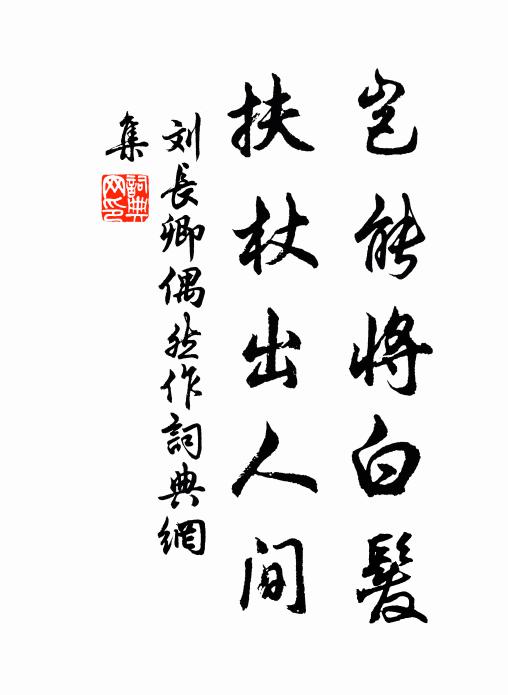 岂能将白髮
扶杖出人间
刘長卿偶然作詞典網
集
詞典
网印